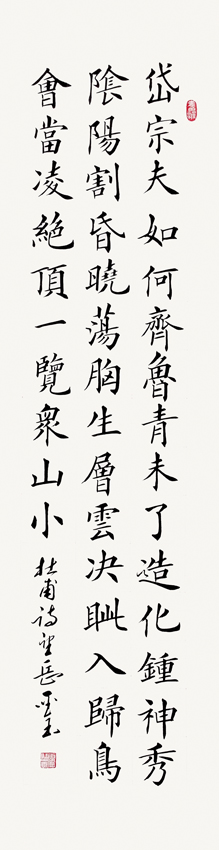 岱宗夫如何齊魯青未了造化鍾神秀
隂陽割昏曉蕩胸生層雲决眦入歸鳥
會當凌絕頂一覽衆山小 杜甫詩望岳